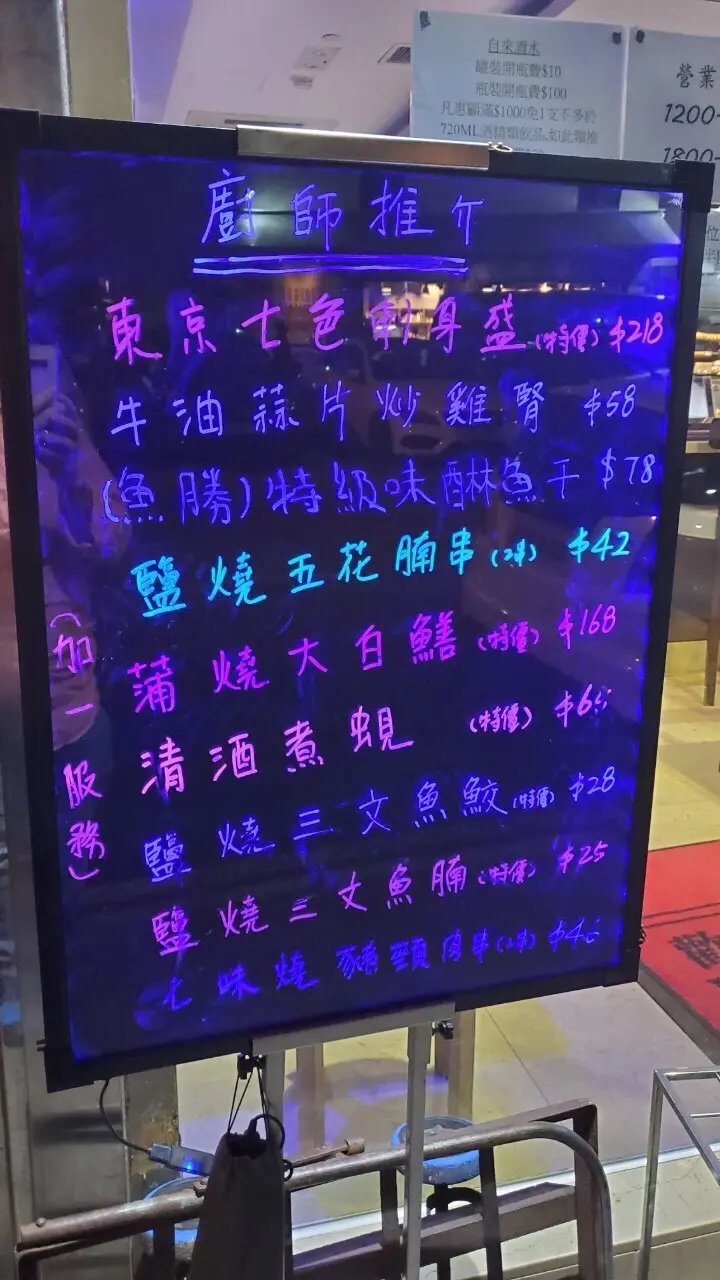 自來酒水
罐裝開瓶費$10
瓶裝開瓶費$100
凡惠顧滿$1000免1支不多於
720ML酒精類飲品,如此類推
營業
1200-
1800-
廚師推介
東京七色刺身盛(特價) $218
牛油蒜片炒雞腎 $58
(魚勝)特級味醂魚干 $78
鹽燒五花腩串(2串) $42
蒲燒大白鱔(特價) $168
清酒煮蜆 (特價)
鹽燒三文魚鮫(特價) $28
鹽燒三文魚腩(特價) $25
七味燒豬頸肉串(2串)
(加一服務)
歡